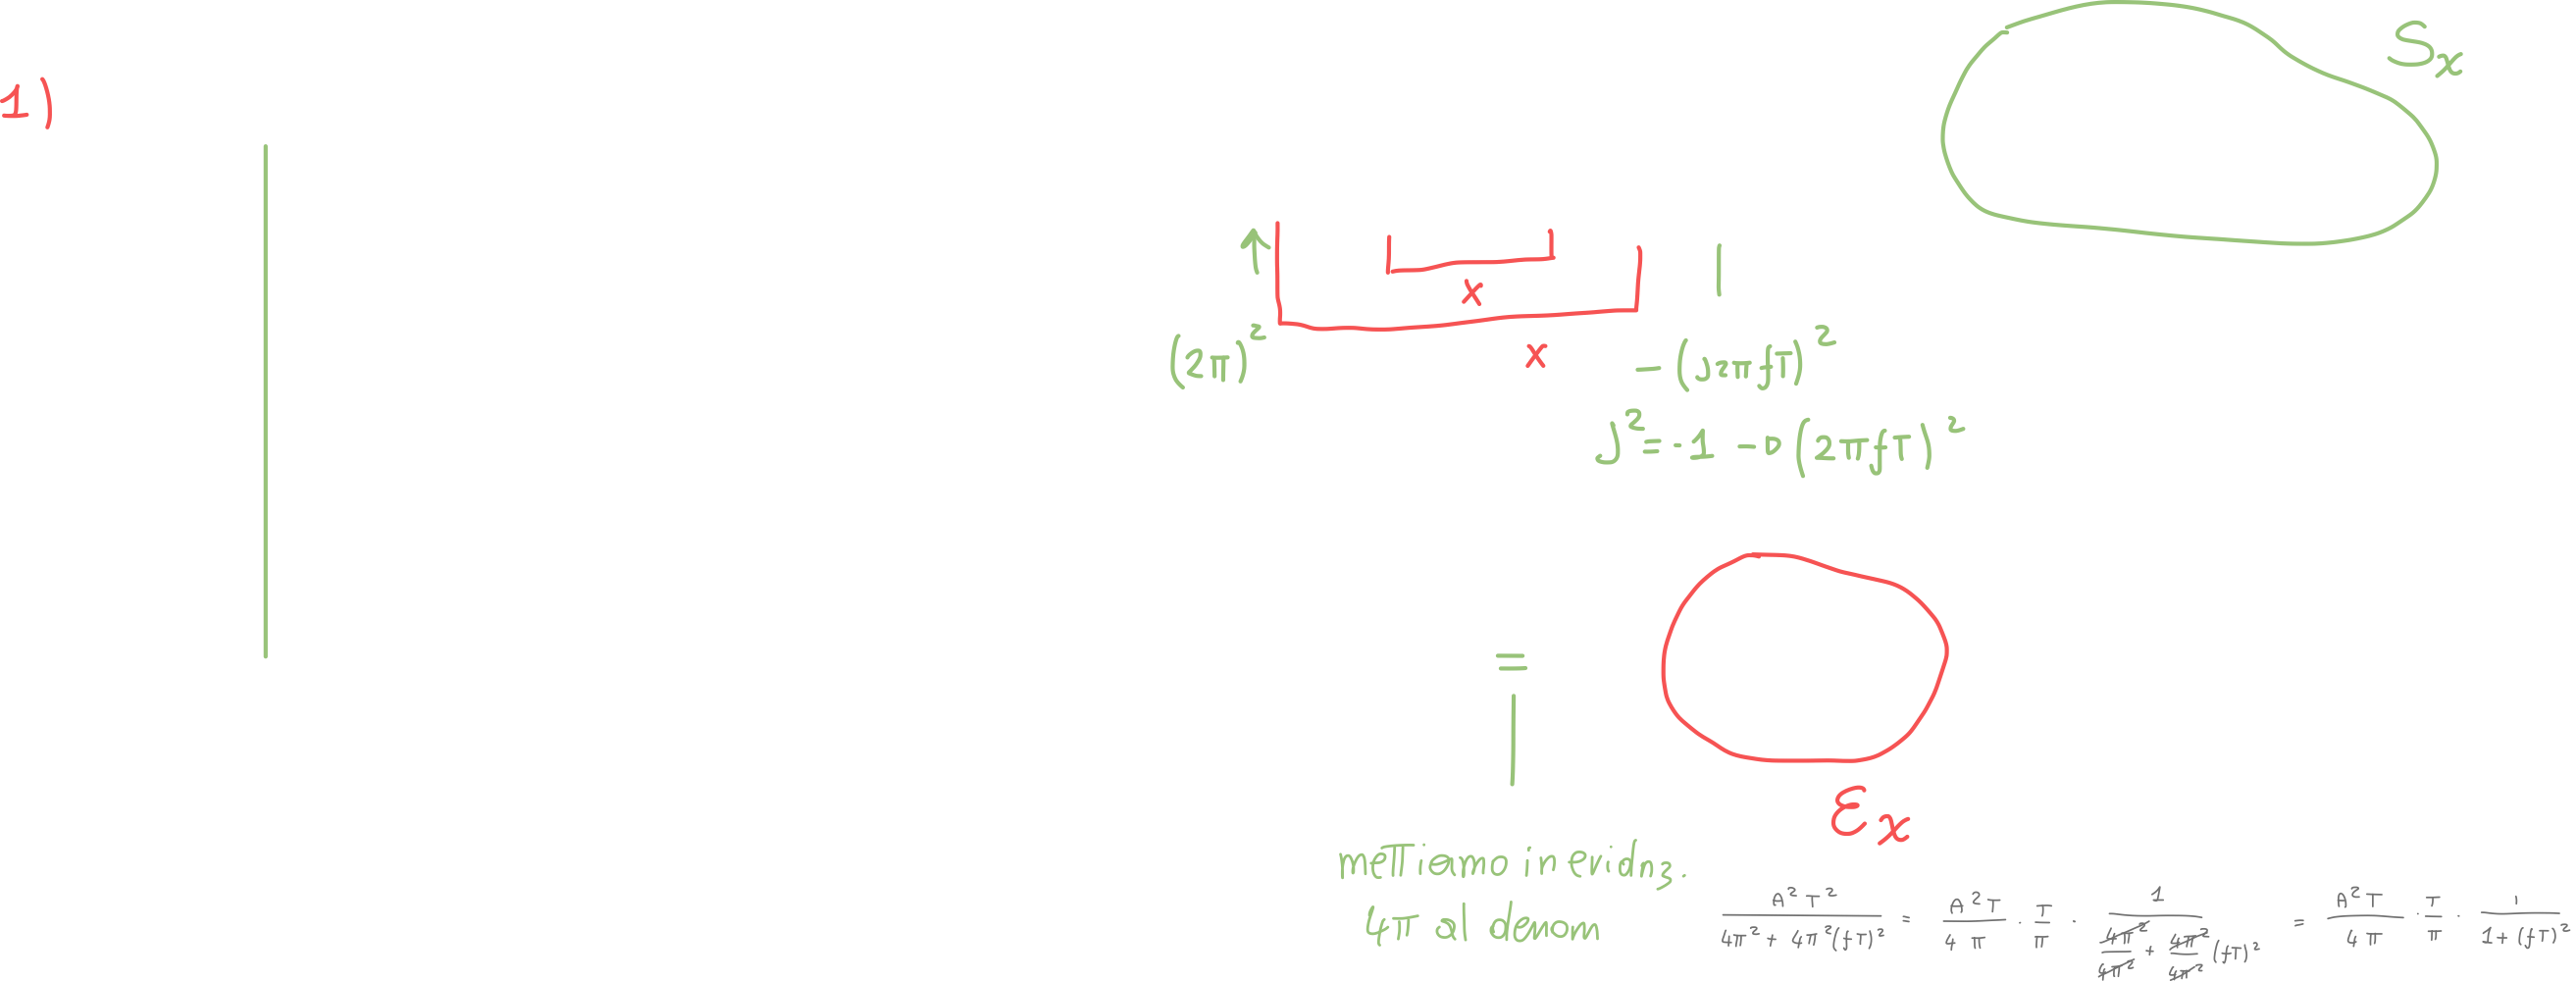 1)
S_x
x
(2π)²
x
-(J2πfT)²
J²=-1 -D(2πfT)²
=
ε_x
mettiamo in evidnz.
4π al denom
A²T² / 4π² + 4π²(fT)² = A²T / 4π · T/π · 1 / (4π²/4π² + 4π²/4π² (fT)²) = A²T / 4π · T/π · 1 / 1+(fT)²